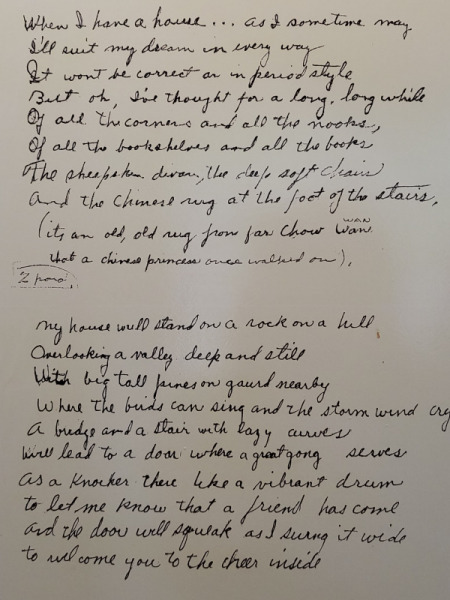 When I have a house... as I sometime may
I'll suit my dream in every way
It wont be correct or in period style
But oh, I've thought for a long, long while
Of all the corners and all the nooks,
Of all the bookshelves and all the books
The sheepskin divan, the deep soft chairs
And the Chinese rug at the foot of the stairs,
(its an old, old rug from far Chow Wan WAN
that a chinese princess once walked on),
My house will stand on a rock on a hill
Overlooking a valley deep and still
With big tall pines on gaurd nearby
Where the birds can sing and the storm wind cry
A bridge and a stair with lazy curves
Will lead to a door where a great gong serves
As a Knocker there like a vibrant drum
to let me know that a friend has come
and the door will squeak as I swing it wide
to welcome you to the cheer inside